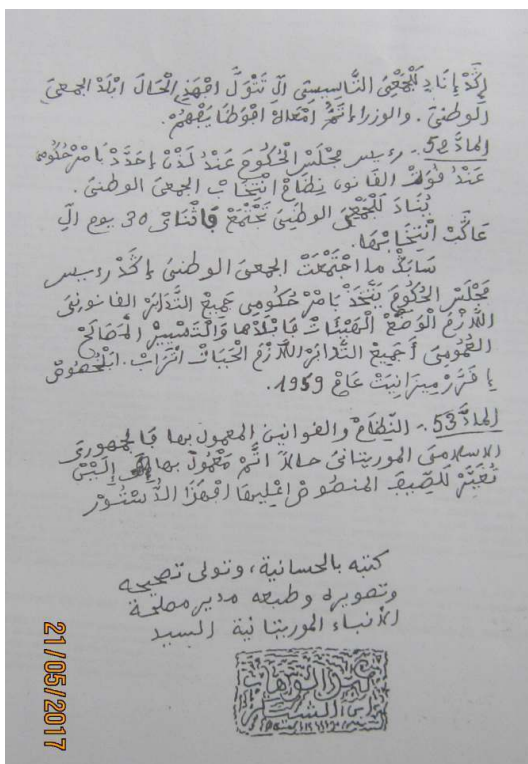 إكَدْ إنَادِ لَلْجَمْعِيَ التَّاسِيسِيَ الِّ تَتْوَلَّ اجْهَذِ الْحَالَ ابْلَدْ الجمعيَ
الوطنيَ. والوزرا اتْمُّ امْعَاهْ افْوَظَايَفْهُمْ.
المادَّ 52 - رءيس مجلس الحُكُومَ عَنْدُ لَذْنْ إحَدَّدْ بَامْرْ حُكُومِي
عَنْدُ قُوَّتْ القانون نِظَامْ انْتِخَابْ الجمعيَ الوطنيَ.
يُنَادَ لَلْجَمْعِيَ الوطنِيَ تَجْتَمَعْ فَاثْنَاتْ 30 يوم الِّ
عَاكْبَ انْتِخَابَهَا.
سَابَكْ ما اجْتَمْعَتْ الجمعيَ الوطنيَ إكَدْ رءيس
مَجْلسْ الحُكُومَ يَتْخَذْ بَامْرْ حُكُومِي جَمِيعْ التَّدَابَرْ القانونيَ
اللازْمَ الْوَضْعْ الْهَيْئَاتْ فَابْلَدْهَا وَالْتَسْيِيرْ الْمَصَالَحْ
العُمُومِيَ أجَمِيعْ التَّدَابَرْ اللازْمَ الْحَيَاتْ اتْرَابْ. ابْلَخْصُوصْ
إقَرَّرْ مِيزَانِيَتْ عَامْ 1959.
المادَّ 53 - النِّظَامْ والقوانين المعمول بها فالجمهوريَ
الاسلاميَ الموريتانيَ حالاً اتَّمْ مَعْمُولْ بها إلَيْنْ
تُغَيَّرْ لَلصِّيفَ المنصُوصْ اعْلِيهَا افْهَذَا الدُّسْتُورْ
كتبه بالحسانية، وتولى تصحيحه
وتصويره وطبعه مدير مصلحة
الأنباء الموريتانية السيد
21/05/2017